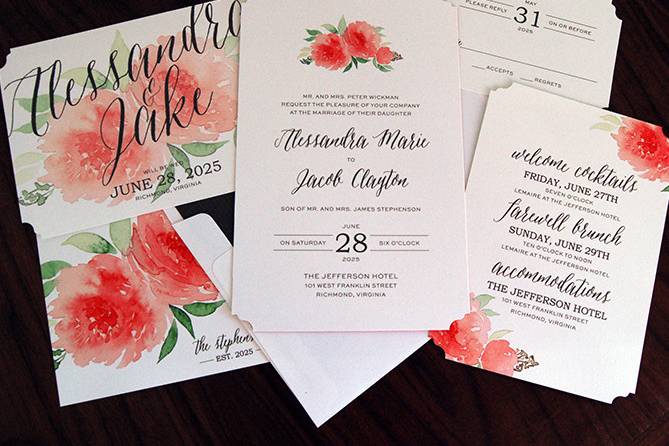 Alessandra
&
Jake
WILL BE WED
JUNE 28, 2025
RICHMOND, VIRGINIA
MR. AND MRS. PETER WICKMAN
REQUEST THE PLEASURE OF YOUR COMPANY
AT THE MARRIAGE OF THEIR DAUGHTER
Alessandra Marie
TO
Jacob Clayton
SON OF MR. AND MRS. JAMES STEPHENSON
JUNE
ON SATURDAY 28 SIX O'CLOCK
2025
THE JEFFERSON HOTEL
101 WEST FRANKLIN STREET
RICHMOND, VIRGINIA
MAY
PLEASE REPLY 31 ON OR BEFORE
ACCEPTS REGRETS
welcome cocktails
FRIDAY, JUNE 27TH
SEVEN O'CLOCK
LEMAIRE AT THE JEFFERSON HOTEL
farewell brunch
SUNDAY, JUNE 29TH
TEN O'CLOCK TO NOON
LEMAIRE AT THE JEFFERSON HOTEL
accommodations
THE JEFFERSON HOTEL
101 WEST FRANKLIN STREET
RICHMOND, VIRGINIA
the stephens
EST. 2025